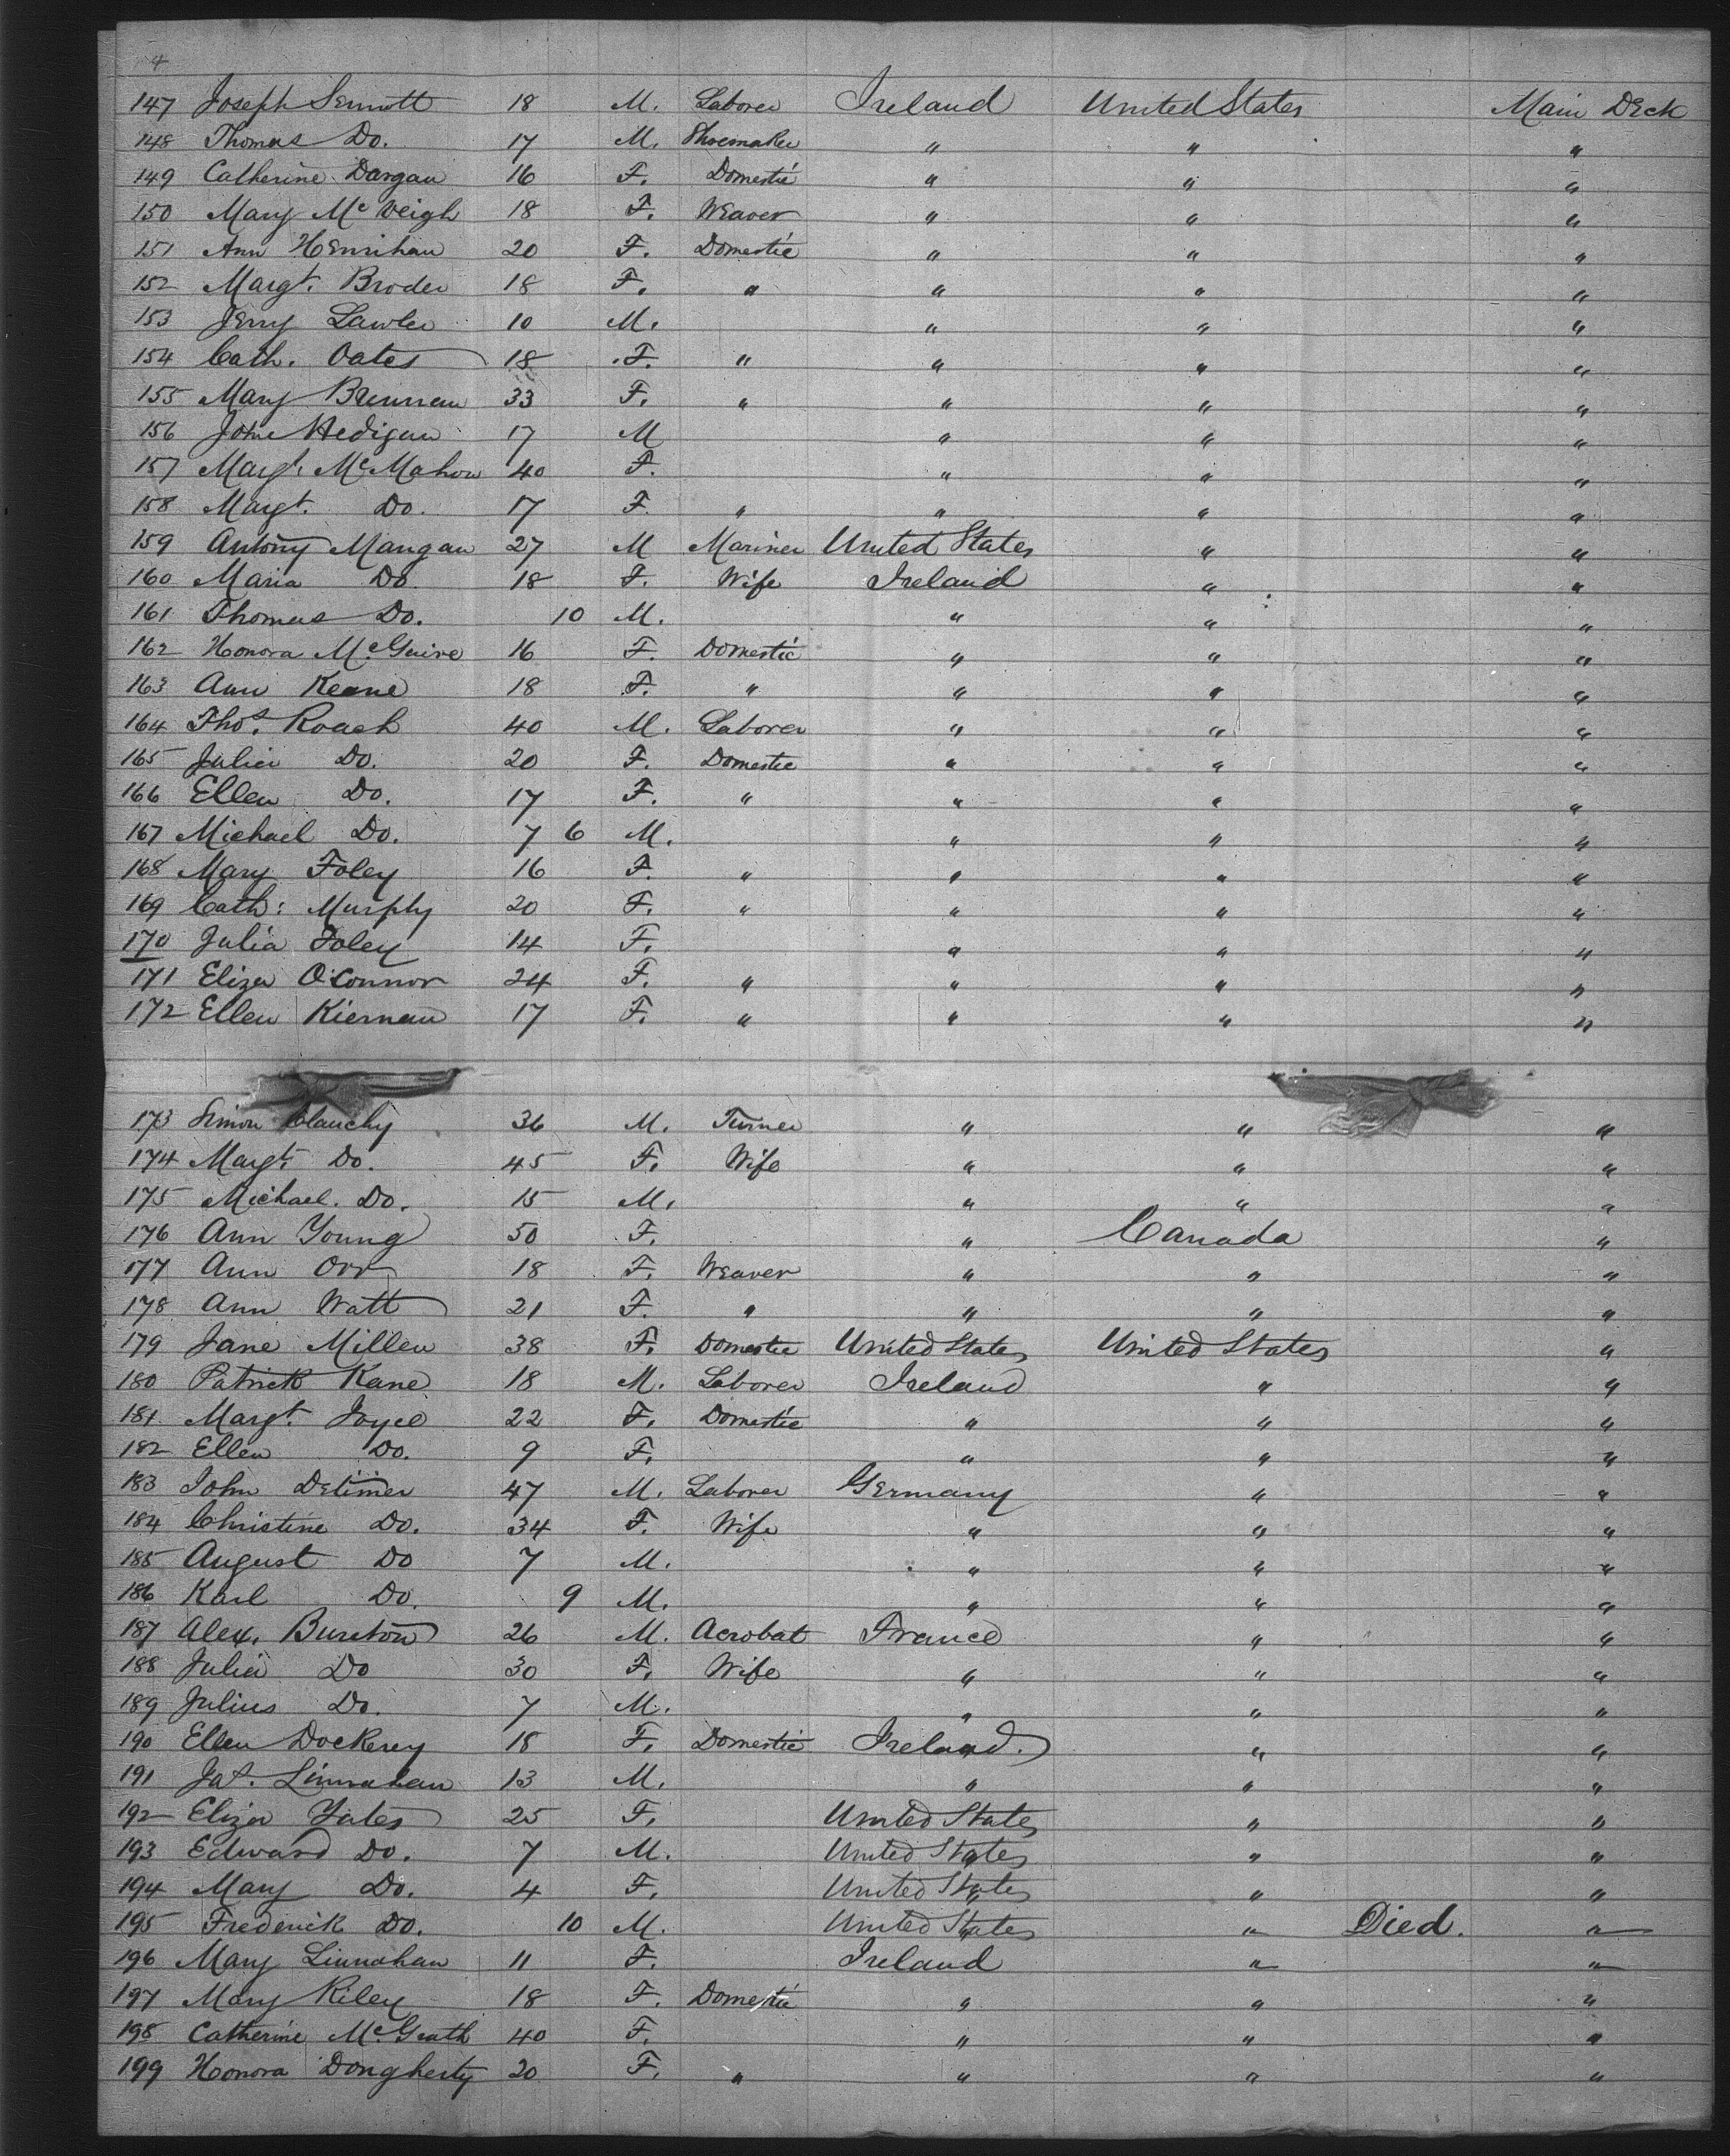 4
147 Joseph Sennott 18 M. Laborer Ireland United States Main Deck
148 Thomas Do. 17 M. Shoemaker " " "
149 Catherine Dargan 16 F. Domestic " " "
150 Mary McVeigh 18 F. Weaver " " "
151 Ann Henrihan 20 F. Domestic " " "
152 Margt. Broder 18 F. " " " "
153 Jerry Lawler 10 M. " " "
154 Cath. Oates 18 F. " " " "
155 Mary Brennan 33 F. " " " "
156 John Hedigan 17 M " " "
157 Margt. McMahon 40 F. " " "
158 Margt. Do. 17 F. " " " "
159 Antony Mangan 27 M Mariner United States " "
160 Maria Do 18 F. Wife Ireland " "
161 Thomas Do. 10 M. " " "
162 Honora McGuire 16 F. Domestic " " "
163 Ann Keane 18 F. " " " "
164 Thos. Roach 40 M. Laborer " " "
165 Julia Do. 20 F. Domestic " " "
166 Ellen Do. 17 F. " " " "
167 Michael Do. 7 6 M. " " "
168 Mary Foley 16 F. " " " "
169 Cath: Murphy 20 F. " " " "
170 Julia Foley 14 F. " " "
171 Eliza O'Connor 24 F. " " " "
172 Ellen Kiernan 17 F. " " " "
173 Simon Clanchy 36 M. Turner " " "
174 Margt. Do. 45 F. Wife " " "
175 Michael. Do. 15 M. " " "
176 Ann Young 50 F. " Canada "
177 Ann Orr 18 F. Weaver " " "
178 Ann Watt 21 F. " " " "
179 Jane Millen 38 F. Domestic United States United States "
180 Patrick Kane 18 M. Laborer Ireland " "
181 Margt. Joyce 22 F. Domestic " " "
182 Ellen Do. 9 F. " " "
183 John Detimer 47 M. Laborer Germany " "
184 Christine Do. 34 F. Wife " " "
185 August Do 7 M. " " "
186 Karl Do. 9 M. " " "
187 Alex. Bureton 26 M. Acrobat France " "
188 Julia Do 30 F. Wife " " "
189 Julius Do. 7 M. " " "
190 Ellen Dockerey 18 F. Domestic Ireland. " "
191 Jas. Linnahan 13 M. " " "
192 Eliza Yates 25 F. United States " "
193 Edward Do. 7 M. United States " "
194 Mary Do. 4 F. United States " "
195 Frederick Do. 10 M. United States " Died. "
196 Mary Linnahan 11 F. Ireland " "
197 Mary Riley 18 F. Domestic " " "
198 Catherine McGrath 40 F. " " "
199 Honora Dongherty 20 F. " " " "